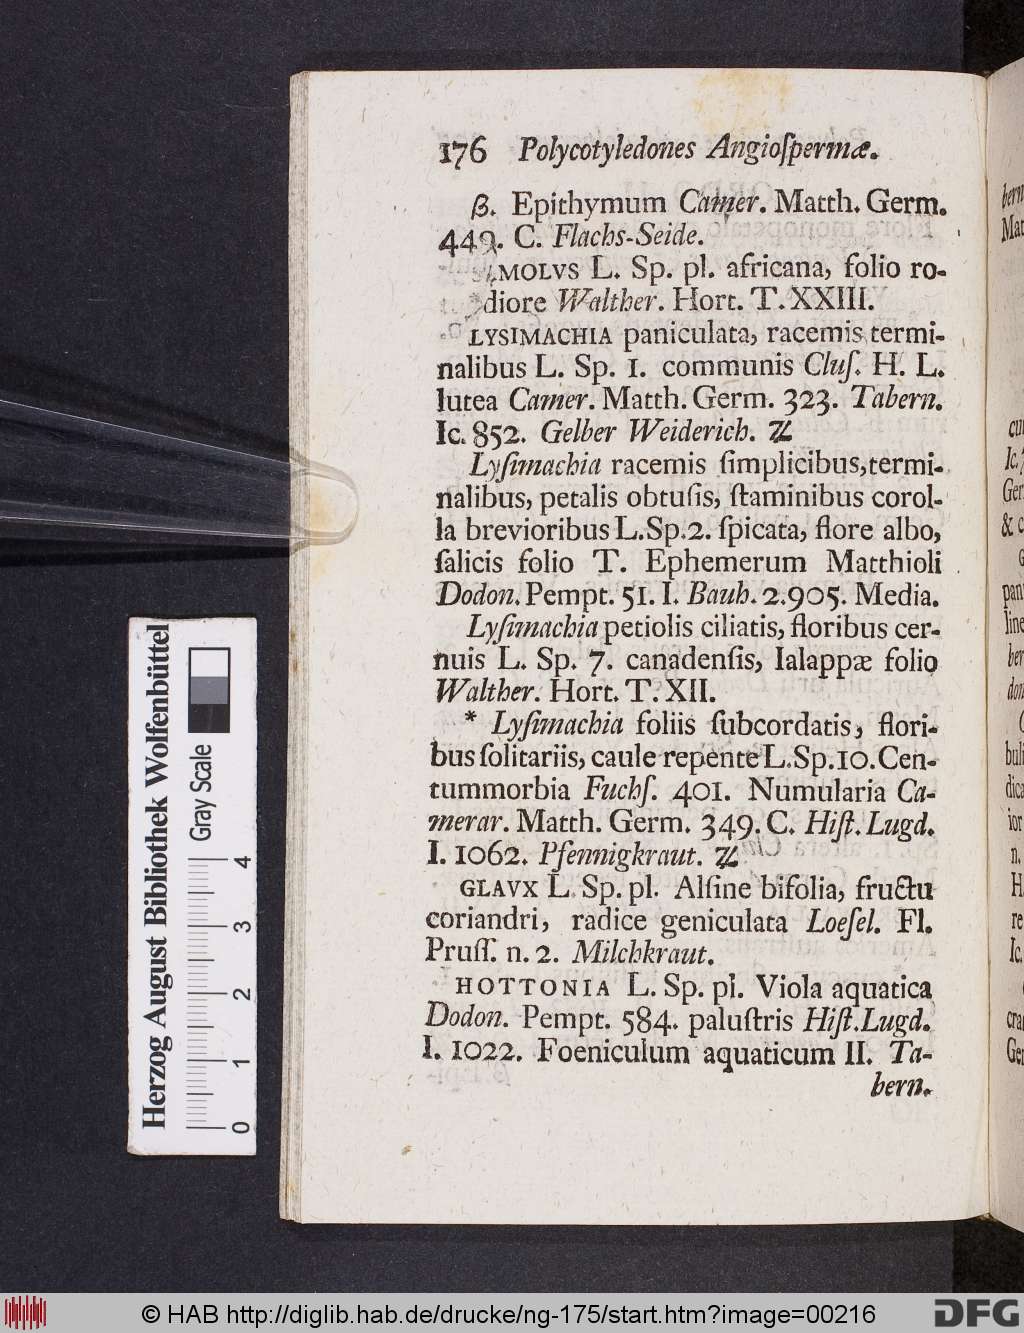 176 Polycotyledones Angioſpermæ.
β. Epithymum Camer. Matth. Germ.
449. C. Flachs-Seide.
MOLVS L. Sp. pl. africana, folio ro-
diore Walther. Hort. T. XXIII.
LYSIMACHIA paniculata, racemis termi-
nalibus L. Sp. 1. communis Cluſ. H. L.
lutea Camer. Matth. Germ. 323. Tabern.
Ic. 852. Gelber Weiderich. ♃
Lyſimachia racemis ſimplicibus, termi-
nalibus, petalis obtuſis, ſtaminibus corol-
la brevioribus L. Sp. 2. ſpicata, flore albo,
ſalicis folio T. Ephemerum Matthioli
Dodon. Pempt. 51. I. Bauh. 2. 905. Media.
Lyſimachia petiolis ciliatis, floribus cer-
nuis L. Sp. 7. canadenſis, Ialappæ folio
Walther. Hort. T. XII.
* Lyſimachia foliis ſubcordatis, flori-
bus ſolitariis, caule repente L. Sp. 10. Cen-
tummorbia Fuchſ. 401. Numularia Ca-
merar. Matth. Germ. 349. C. Hiſt. Lugd.
I. 1062. Pfennigkraut. ♃
GLAVX L. Sp. pl. Alſine bifolia, fructu
coriandri, radice geniculata Loeſel. Fl.
Pruſſ. n. 2. Milchkraut.
HOTTONIA L. Sp. pl. Viola aquatica
Dodon. Pempt. 584. paluſtris Hiſt. Lugd.
I. 1022. Foeniculum aquaticum II. Ta-
bern.
Herzog August Bibliothek Wolfenbüttel
Gray Scale
0 1 2 3 4
© HAB http://diglib.hab.de/drucke/ng-175/start.htm?image=00216
DFG